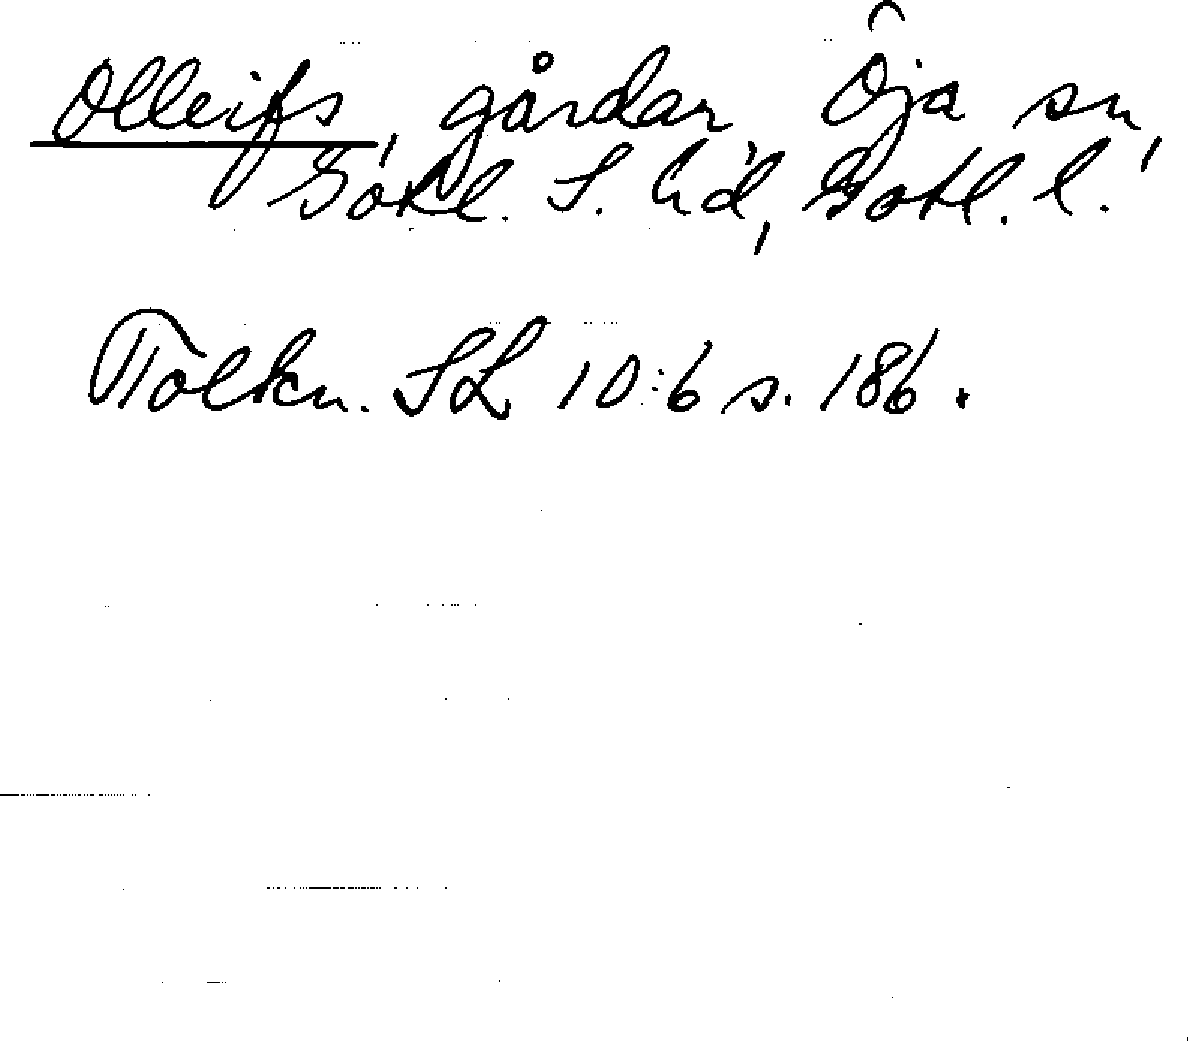 Olleifs, gårdar, Öja sn,
Gotl. S. hd, Gotl. l.
Tolkn. SL 10:6 s. 186.